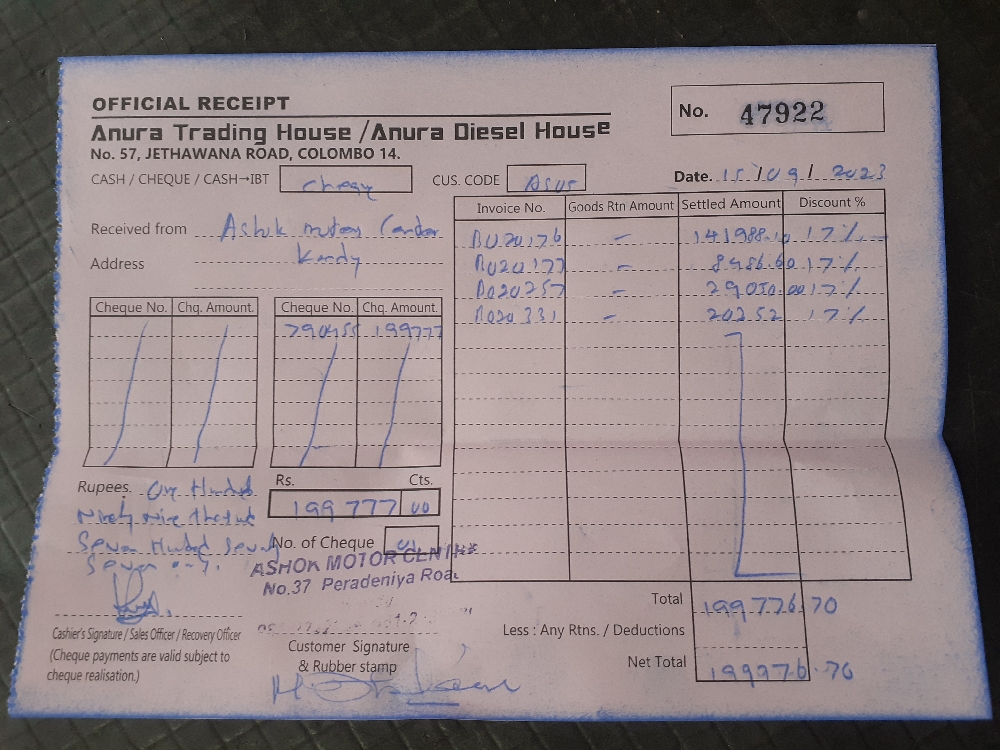 OFFICIAL RECEIPT
No. 47922
Anura Trading House /Anura Diesel House
No. 57, JETHAWANA ROAD, COLOMBO 14.
CASH / CHEQUE / CASH→IBT Cheque
CUS. CODE
Date. 15/09/2023
Received from Ashok motors
Address Kandy
Invoice No. Goods Rtn Amount Settled Amount Discount %
BU20176 - 141988.10 17%
- 17%
- 29050.00 17%
- 20252 17%
Cheque No. Chq. Amount. Cheque No. Chq. Amount.
790455 199777
Rupees. One Hundred
Ninety Nine
Seven Hundred Seventy
Seven
Rs. Cts.
199 777 00
No. of Cheque 01
ASHOK MOTOR
No.37 Peradeniya
Total 199776.70
Less : Any Rtns. / Deductions
Net Total 199776.70
Cashier's Signature / Sales Officer / Recovery Officer
(Cheque payments are valid subject to
cheque realisation.)
Customer Signature
& Rubber stamp